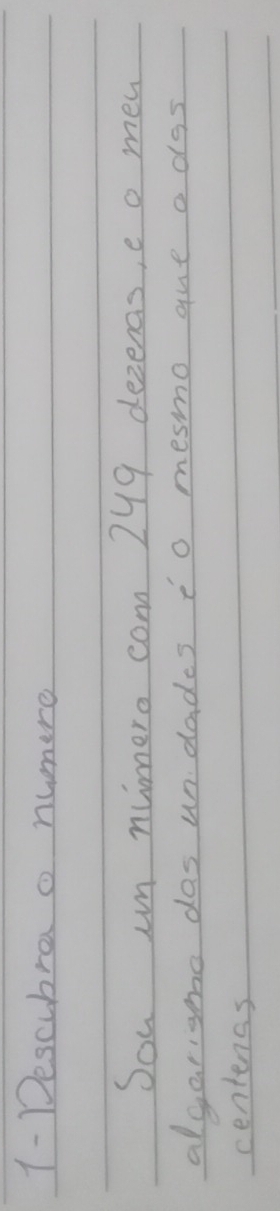 1-Descubra o número
Sou um número com 249 dezenas, e o meu
algarismo das unidades é o mesmo que o das
centenas